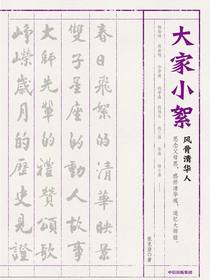 大家小絮
风骨清华人
思念父母恩，感怀清华魂，追忆大师谊。
张克澄 著
春日飛絮的清華映景
雙子星座的動人故事
大師先輩的禮贊頌歌
崢嶸歲月的歷史見證
中信出版集团